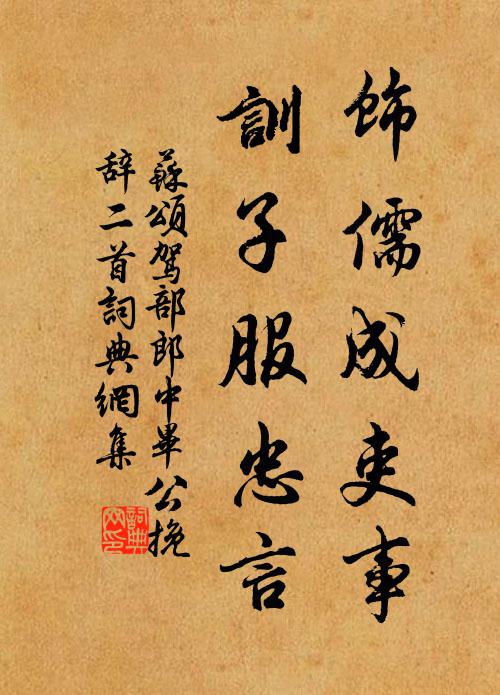 飾儒成吏事
訓子服忠言
蘇頌駕部郎中畢公挽
辞二首詞典網集